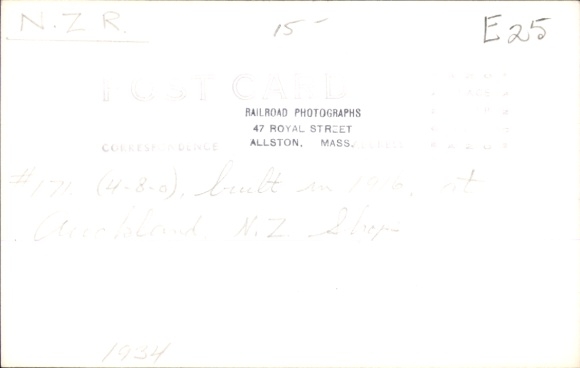 N.Z.R. 15- E25
POST CARD
RAILROAD PHOTOGRAPHS
47 ROYAL STREET
CORRESPONDENCE ALLSTON, MASS.
#171. (4-8-0), built in 1916, at
Auckland. N.Z. Shops
1934